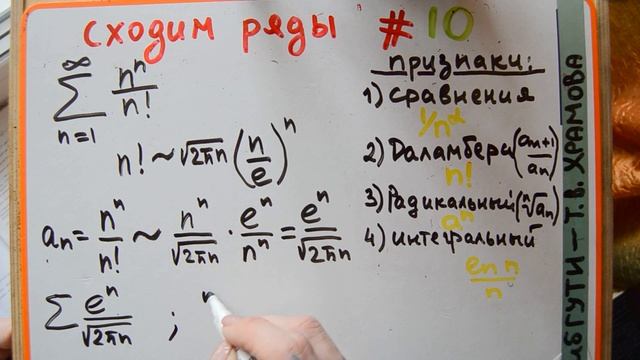 сходим ряды #10
∞
∑ nⁿ/n!
n=1
n! ~ √2πn (n/e)ⁿ
aₙ = nⁿ/n! ~ nⁿ/√2πn · eⁿ/nⁿ = eⁿ/√2πn
∑ eⁿ/√2πn ;
признаки:
1) сравнения
1/n^α
2) Даламбера (aₙ₊₁/aₙ)
n!
3) Радикальный (ⁿ√aₙ)
aⁿ
4) интегральный
ℓn n/n
СибГУТИ – Т.В. ХРАМОВА